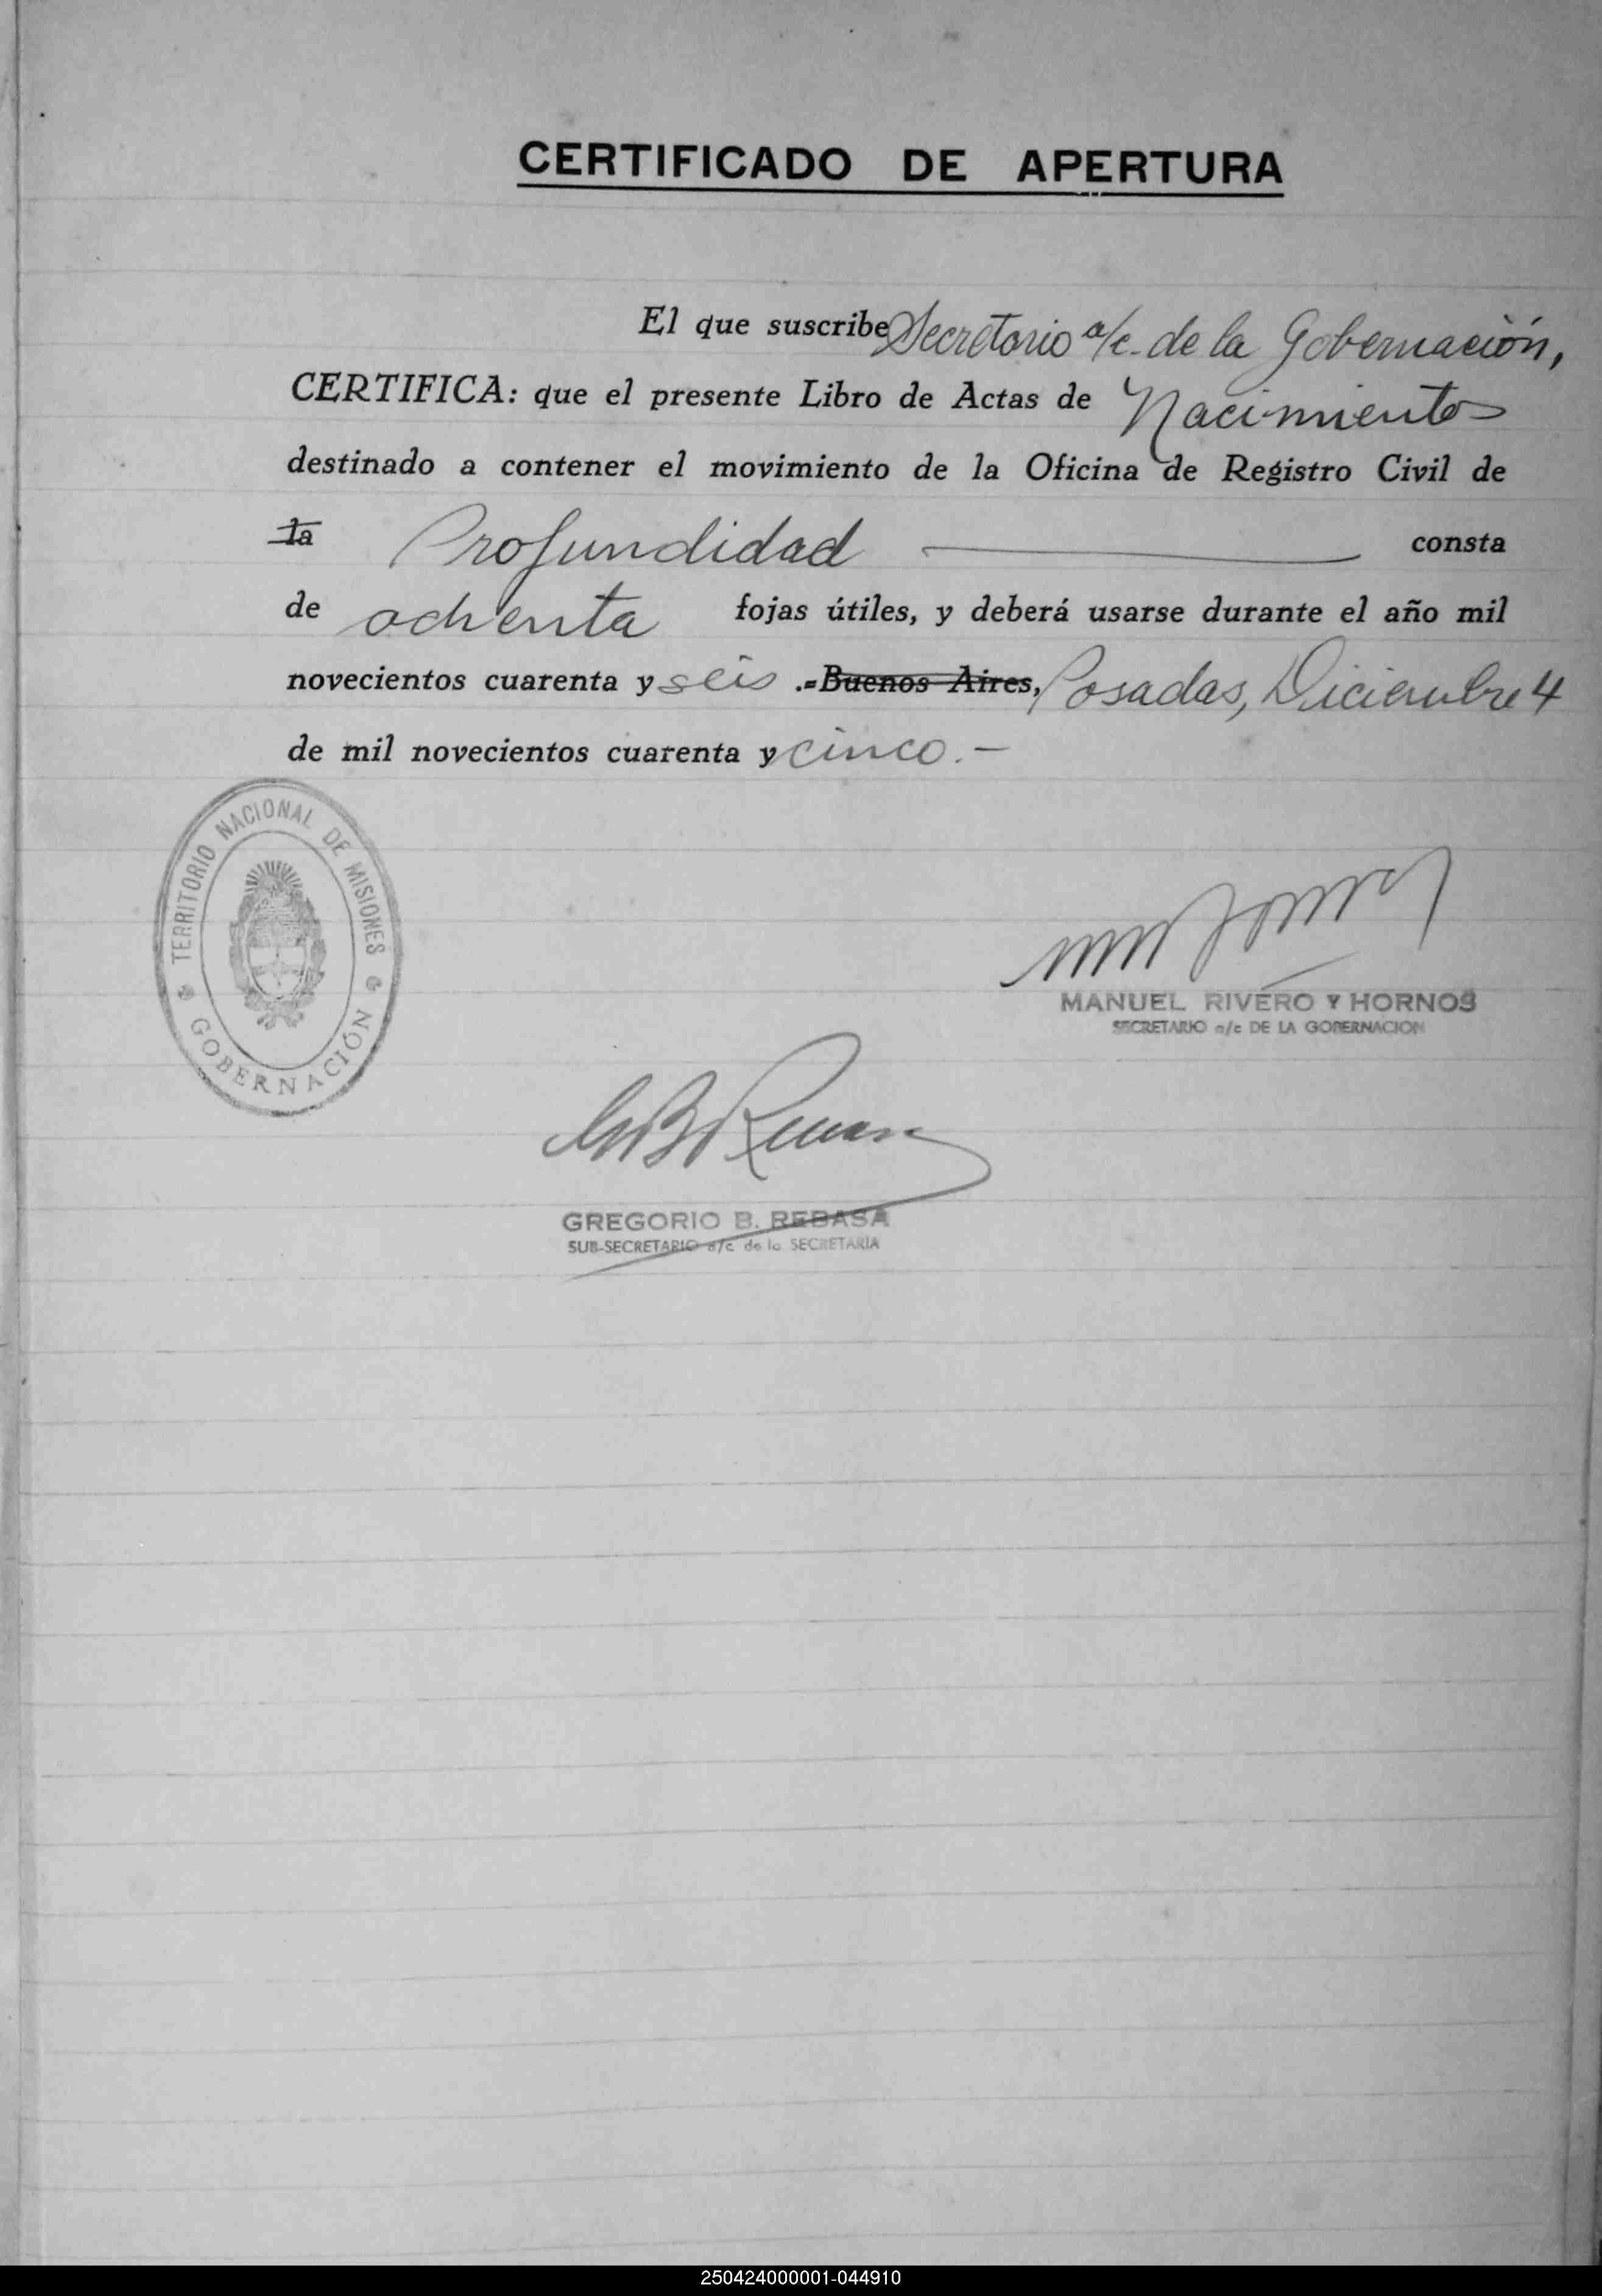 CERTIFICADO DE APERTURA
El que suscribe Secretario a/c. de la Gobernación,
CERTIFICA: que el presente Libro de Actas de Nacimientos
destinado a contener el movimiento de la Oficina de Registro Civil de
la Profundidad consta
de ochenta fojas útiles, y deberá usarse durante el año mil
novecientos cuarenta y seis .=Buenos Aires, Posadas, Diciembre 4
de mil novecientos cuarenta y cinco.-
TERRITORIO NACIONAL DE MISIONES
GOBERNACIÓN
MANUEL RIVERO Y HORNOS
SECRETARIO a/c DE LA GOBERNACION
GREGORIO B. REBASA
SUB-SECRETARIO a/c de la SECRETARIA
250424000001-044910